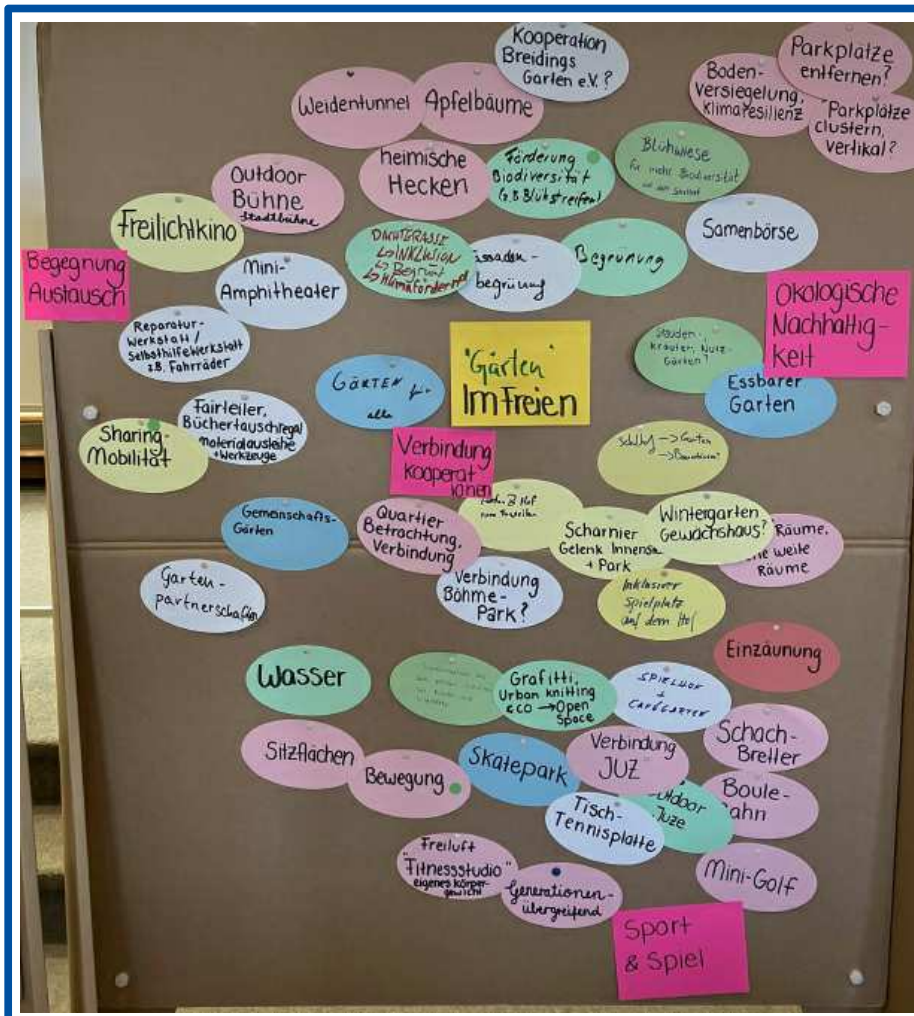 Kooperation
Breidings
Garten e.V.?
Parkplätze
entfernen?
Boden-
Versiegelung,
Klimaresilienz
Parkplätze
clustern,
Vertikal?
Weidentunnel
Apfelbäume
heimische
Hecken
Förderung
Biodiversität
(z.B Blühstreifen)
Blühwiese
für mehr Biodiversität
Outdoor
Bühne
Stadtbühne
Freilichtkino
DACHTERASSE
↳ INKLUSION
↳ Begrünt
↳ Klimafördernd
Fassaden-
begrünung
Begrünung
Samenbörse
Begegnung
Austausch
Mini-
Amphitheater
Ökologische
Nachhaltig-
keit
Reparatur-
Werkstatt /
Selbsthilfewerkstatt
z.B. Fahrräder
"Gärten"
Im Freien
Stauden-,
Kräuter, Nutz-
Gärten?
GÄRTEN für
alle
Essbarer
Garten
Fairteiler,
Büchertauschregal
Materialausleihe
+ Werkzeuge
Sharing-
Mobilität
Verbindung
kooperat
ionen
Schulhof → Garten
Gemeinschafts-
Gärten
Quartier
Betrachtung,
Verbindung
Hof
Scharnier
Gelenk
+ Park
Wintergarten
Gewächshaus?
Räume,
weite
Räume
Garten-
partnerschaften
Verbindung
Böhme-
Park?
Inklusiver
Spielplatz
auf dem Hof
Einzäunung
Wasser
Grafitti,
Urban knitting
& CO → Open
Space
SPIELHOF
+
CAFÉGARTEN
Schach-
Bretter
Sitzflächen
Bewegung
Skatepark
Verbindung
JUZ
Boule-
Bahn
Tisch-
Tennisplatte
Outdoor
Juze
Freiluft
"Fitnessstudio"
eigenes körper-
gewicht
Generationen-
übergreifend
Mini-Golf
Sport
& Spiel